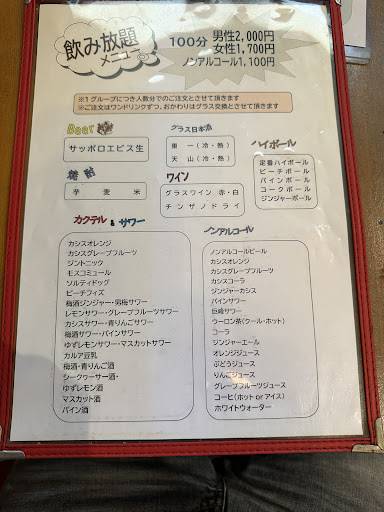 飲み放題
メニュー
100分 男性2,000円
女性1,700円
ノンアルコール1,100円
※1グループにつき人数分でのご注文とさせて頂きます
※ご注文はワンドリンクずつ、おかわりはグラス交換とさせて頂きます
Beer
サッポロエビス生
グラス日本酒
東一(冷・熱)
天山(冷・熱)
ハイボール
定番ハイボール
ピーチボール
パインボール
コークボール
ジンジャーボール
焼酎
芋 麦 米
ワイン
グラスワイン 赤・白
チンザノドライ
カクテル & サワー
カシスオレンジ
カシスグレープフルーツ
ジントニック
モスコミュール
ソルティドッグ
ピーチフィズ
梅酒ジンジャー・男梅サワー
レモンサワー・グレープフルーツサワー
カシスサワー・青りんごサワー
梅酒サワー・パインサワー
ゆずレモンサワー・マスカットサワー
カルア豆乳
梅酒・青りんご酒
シークヮーサー酒・
ゆずレモン酒
マスカット酒
パイン酒
ノンアルコール
ノンアルコールビール
カシスオレンジ
カシスグレープフルーツ
カシスコーラ
ジンジャーカシス
パインサワー
巨峰サワー
ウーロン茶(クール・ホット)
コーラ
ジンジャーエール
オレンジジュース
ぶどうジュース
りんごジュース
グレープフルーツジュース
コーヒ(ホット or アイス)
ホワイトウォーター